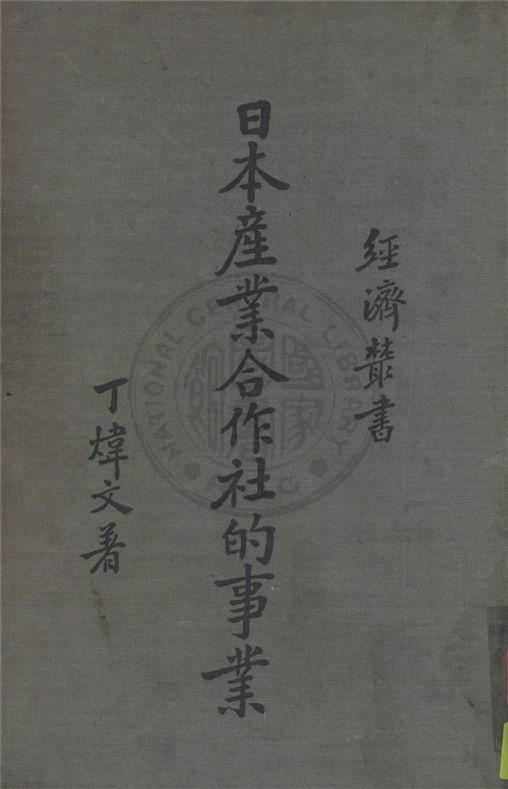 經濟叢書
日本產業合作社的事業
丁煒文著
NATIONAL CENTRAL LIBRARY
國家